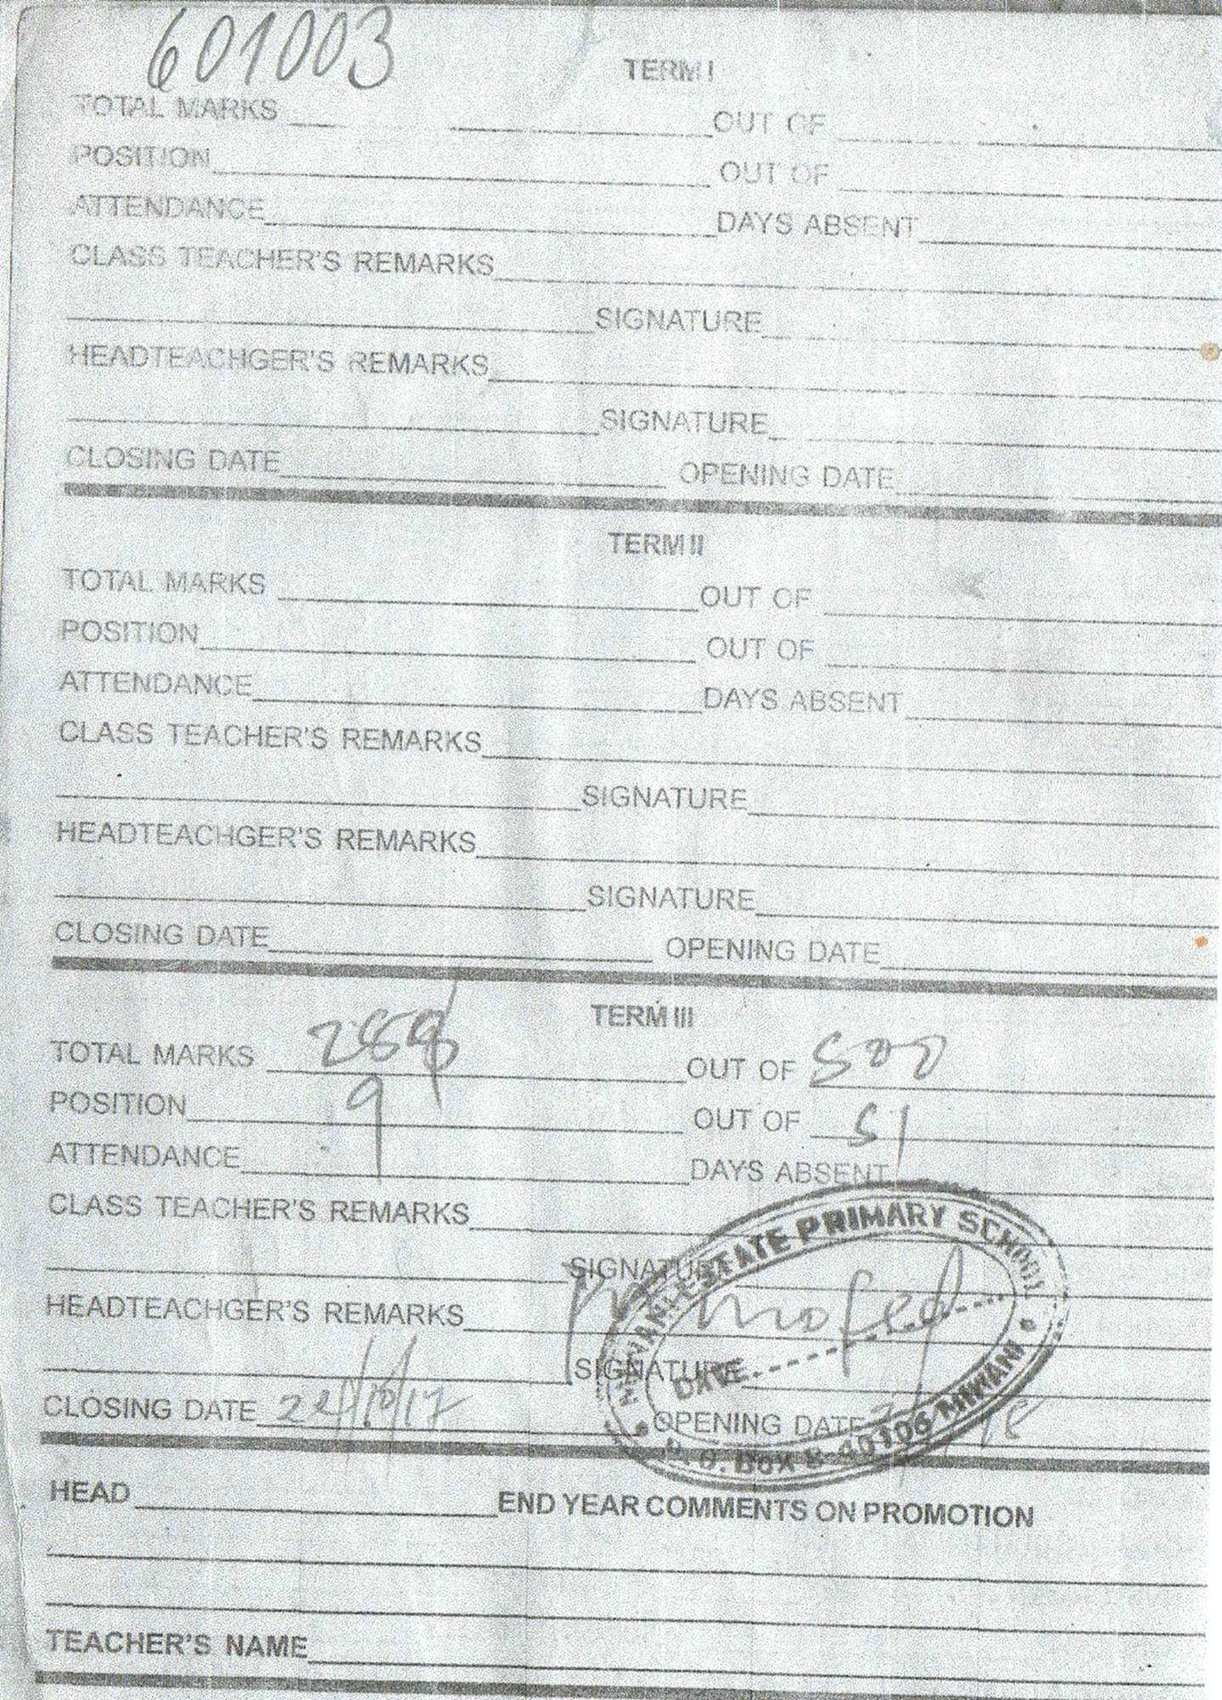 601003
TERM I
TOTAL MARKS OUT OF
POSITION OUT OF
ATTENDANCE DAYS ABSENT
CLASS TEACHER'S REMARKS
SIGNATURE
HEADTEACHGER'S REMARKS
SIGNATURE
CLOSING DATE OPENING DATE
TERM II
TOTAL MARKS OUT OF
POSITION OUT OF
ATTENDANCE DAYS ABSENT
CLASS TEACHER'S REMARKS
SIGNATURE
HEADTEACHGER'S REMARKS
SIGNATURE
CLOSING DATE OPENING DATE
TERM III
TOTAL MARKS OUT OF 500
POSITION 9 OUT OF 51
ATTENDANCE DAYS ABSENT
CLASS TEACHER'S REMARKS
SIGNATURE
HEADTEACHGER'S REMARKS
SIGNATURE
CLOSING DATE OPENING DATE
MIWANI ESTATE PRIMARY SCHOOL
DATE
P. O. Box 8-40106 MIWANI
HEAD END YEAR COMMENTS ON PROMOTION
TEACHER'S NAME